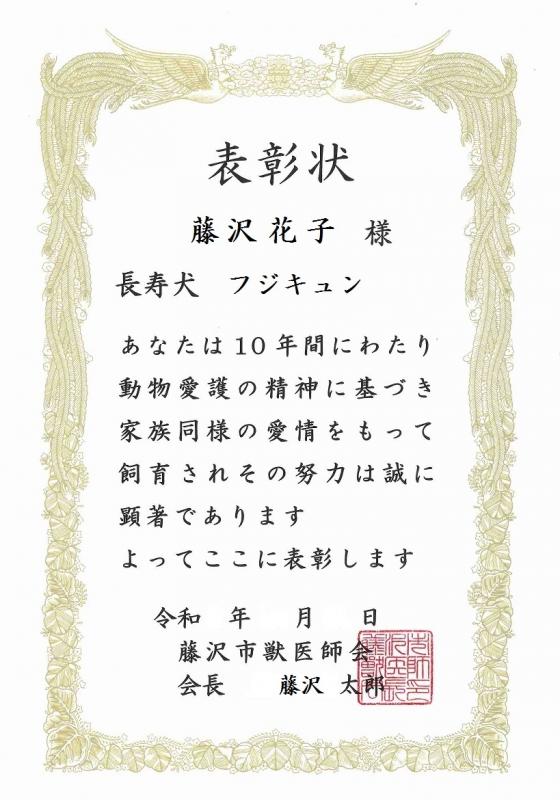 表彰状
藤沢花子 様
長寿犬 フジキュン
あなたは10年間にわたり
動物愛護の精神に基づき
家族同様の愛情をもって
飼育されその努力は誠に
顕著であります
よってここに表彰します
令和 年 月 日
藤沢市獣医師会
会長 藤沢 太郎